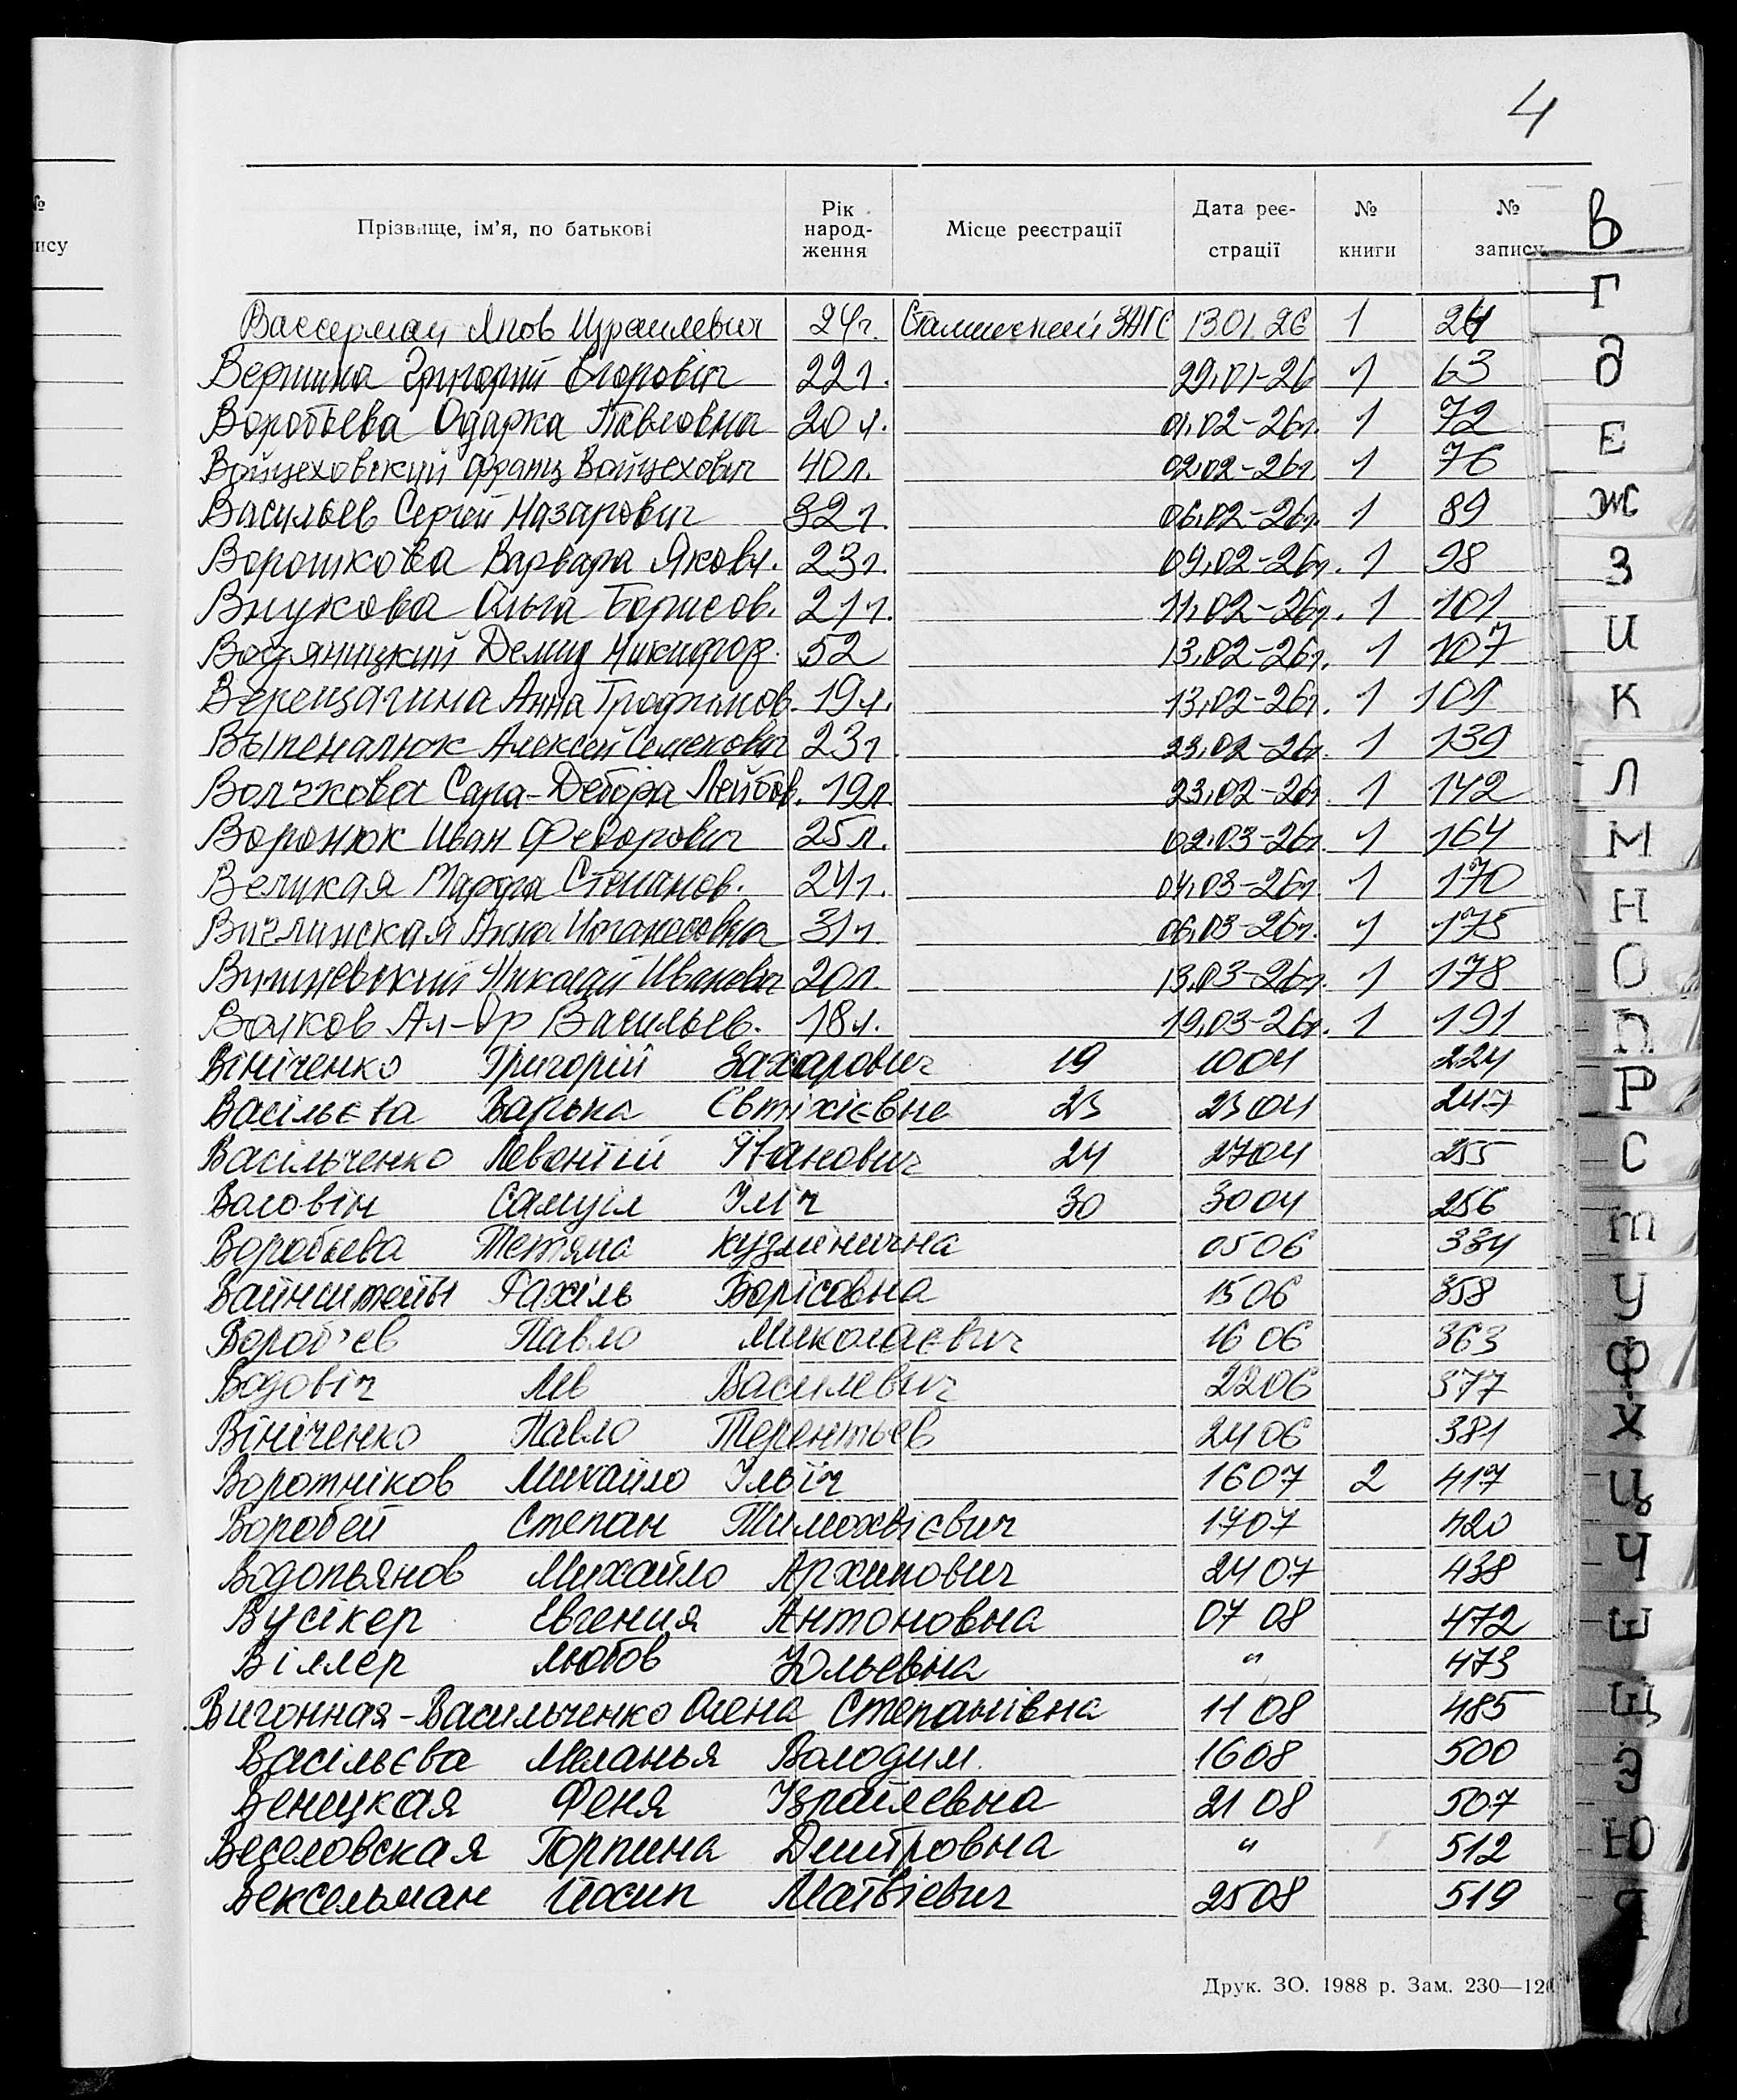 4
№
ису
Прізвище, ім'я, по батькові Рік народ-ження Місце реєстрації Дата реє-страції № книги № запису
Вассерман Яков Израилевич 24г. Сталинский ЗАГС 13.01.26 1 24
Вершина Григорий Егоровіч 22г. 29.01-26 1 63
Воробьева Одарка Павловна 20л. 01.02-26г. 1 72
Войцеховский Франц Войцехович 40л. 02.02-26г. 1 76
Васильев Сергей Назарович 32г. 06.02-26г. 1 89
Ворошкова Варвара Яковл. 23г. 09.02-26г. 1 98
Внукова Ольга Борисов. 21г. 11.02-26г. 1 101
Водяницкий Демид Никифор. 52 13.02-26г. 1 107
Верещагина Анна Трофимов. 19л. 13.02-26г. 1 109
Алексей Семенович 23г. 23.02-26г. 1 139
Волчкова Сара-Дебора Лейбов. 19л 23.02-26г. 1 142
Воронюк Иван Федорович 25л. 02.03-26г. 1 164
Великая Марфа Степанов. 24г. 04.03-26г. 1 170
Анна 31г. 06.03-26г. 1 175
Вишневский Николай Иванович 20л. 13.03-26г. 1 178
Волков Ал-др Васильев. 18л. 19.03-26г. 1 191
Вініченко Григорій Захарович 19 1004 224
Васільєва Варька Євтіхієвне 23 2304 247
Васільченко Левонтій Іванович 24 2704 255
Самуіл Іліч 30 3004 256
Воробьева Тетяна Кузминична 0506 334
Рахіль Борісовна 1506 358
Вороб'єв Павло Миколаєвич 1606 363
Водовіч Лев Василевич 2206 377
Вініченко Павло Терентьев 2406 381
Воротніков Михайло Ільїч 1607 2 417
Воробей Степан Тимохвієвич 1707 420
Водопьянов Михайло Архипович 2407 438
Вусікер Евгения Антоновна 07 08 472
Віллер Любов Юльевна " 473
Вигонная-Васильченко Олена Степанівна 11 08 485
Васільєва Меланья Володим. 1608 500
Венецкая Феня Ізраілевна 21 08 507
Веселовская Горпина Дмитровна " 512
Вексельман Йосип Матвієвич 2508 519
Друк. ЗО. 1988 р. Зам. 230—120
В
Г
д
Е
Ж
З
И
К
Л
М
Н
О
П
Р
С
т
У
Ф
Х
Ц
Ч
Ш
Щ
Э
Ю
Я